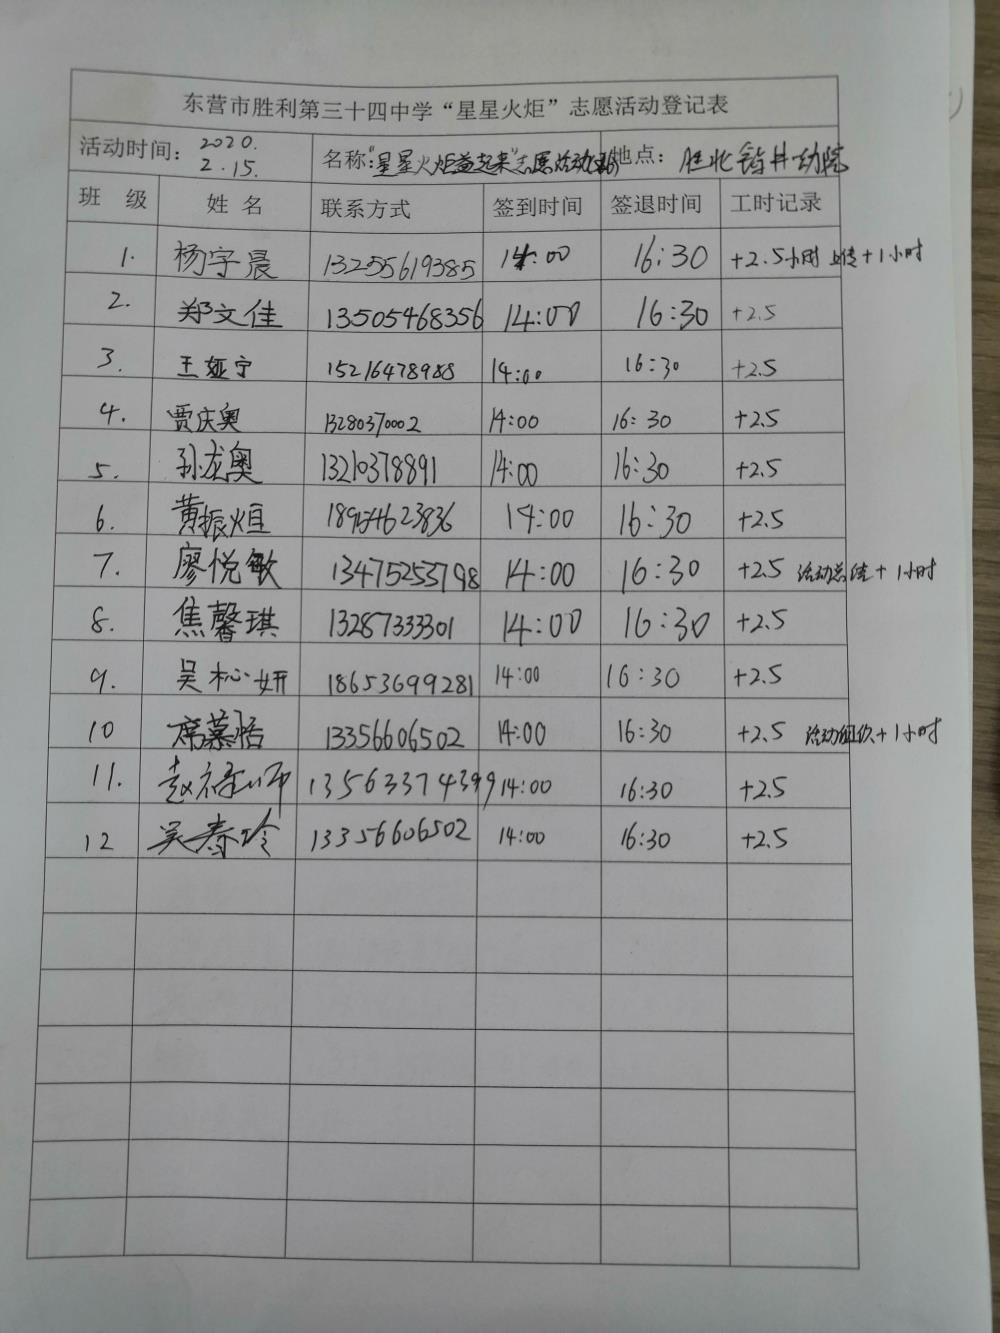 东营市胜利第三十四中学“星星火炬”志愿活动登记表
活动时间：2020.2.15. 名称：“星星火炬益起来”志愿活动 地点：胜北钻井
班 级 姓 名 联系方式 签到时间 签退时间 工时记录
1. 杨宇晨 13255619385 14:00 16:30 +2.5小时 上传+1小时
2. 郑文佳 13505468356 14:00 16:30 +2.5
3. 王娅宁 15216478988 14:00 16:30 +2.5
4. 贾庆奥 13280370002 14:00 16:30 +2.5
5. 孙龙奥 13210378891 14:00 16:30 +2.5
6. 黄振烜 18954623836 14:00 16:30 +2.5
7. 廖悦敏 13475253798 14:00 16:30 +2.5 活动总结+1小时
8. 焦馨琪 13287333301 14:00 16:30 +2.5
9. 吴杺妍 18653699281 14:00 16:30 +2.5
10 席慕恬 13356606502 14:00 16:30 +2.5 活动组织+1小时
11. 赵 13563374399 14:00 16:30 +2.5
12 吴春玲 13356606502 14:00 16:30 +2.5